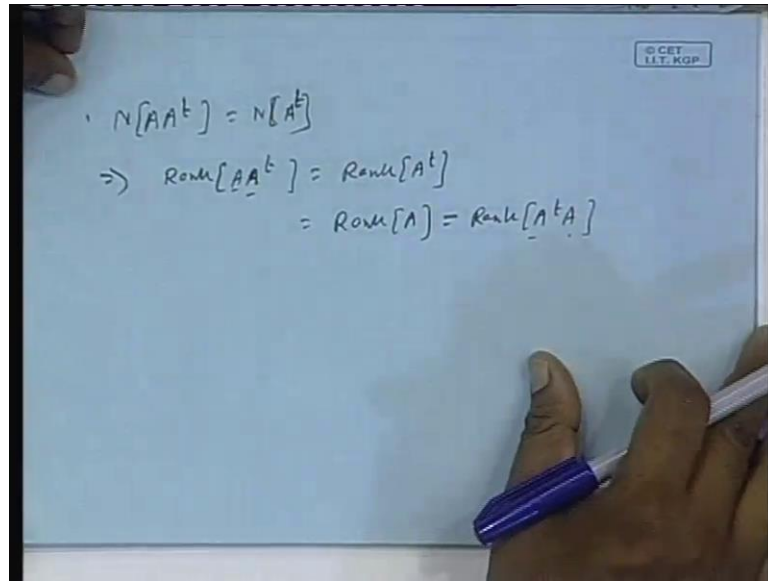 © CET
I.I.T. KGP
N[AAᵗ] = N[Aᵗ]
⇒ Rank[AAᵗ] = Rank[Aᵗ]
= Rank[A] = Rank[AᵗA]